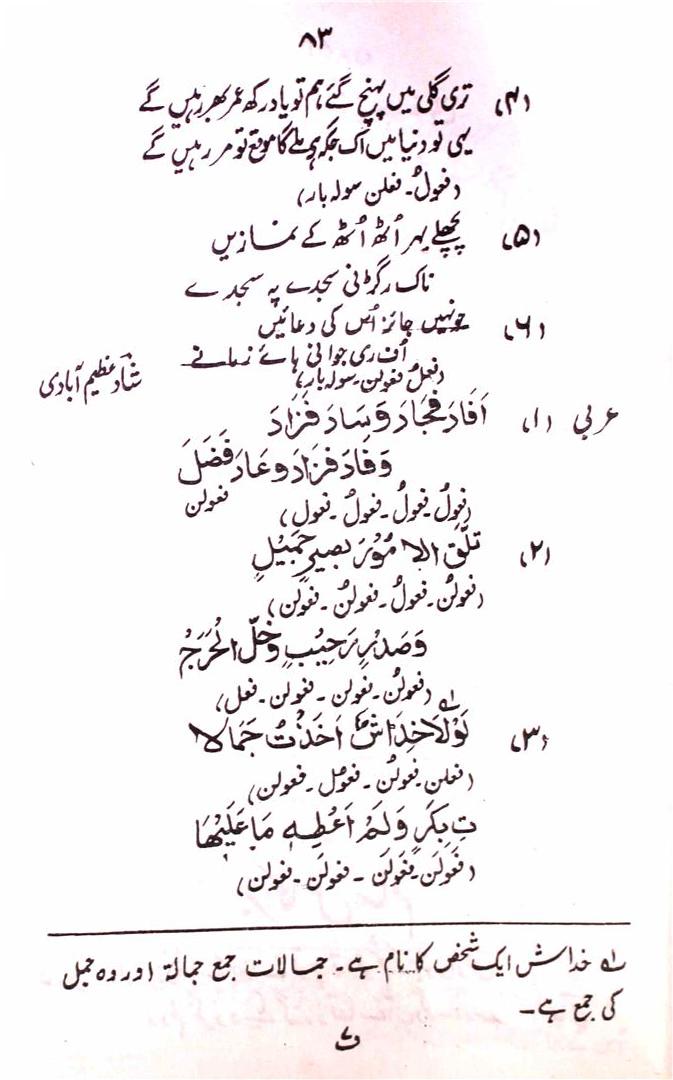 ۸۳
(۴) تری گلی میں پہنچ گئے ہم تو یاد رکھ عمر بھر رہیں گے
یہی تو دنیا میں اک جگہ ہے ملے گا موقع تو مر رہیں گے
(فعولُ۔ فعلن سولہ بار)
(۵) پچھلے پہر اُٹھ اُٹھ کے نمازیں
ناک رگڑنی سجدے پہ سجدے
(۶) جو نہیں جائز اُس کی دعائیں
اُف ری جوانی ہائے زمانے
شاد عظیم آبادی
(فعلُ فعولن۔ سولہ بار)
عربی (۱) اَفَادَ فَجَادَ وَسَادَ فَزَادَ
وَقَادَ فَزَادَ وعَادَ فَضَلَ
(فعولُ۔ فعولُ۔ فعولُ۔ فعولِ) فعولن
(۲) تلَقّ الا مُوْرَ بصبرٍ جَمِيْلٍ
(فعولن۔ فعولُ۔ فعولن۔ فعولن)
وَصَدْرٍ رَحِيْبٍ وخَلِّ الْحَرَجْ
(فعولن۔ فعولن۔ فعولن۔ فعل)
(۳) لَوْلَا خِدَاشٌ ؎۱ اَخَذْتُ جَمَالا
(فعلن۔ فعولن۔ فعولُ۔ فعولن)
تِ بِكَرٍ وَلَمْ اُعْطِهٖ مَا عَلَيْهَا
(فعولن۔ فعولن ۔ فعولن ۔ فعولن)
؎۱ خداش ایک شخص کا نام ہے۔ جمالات جمع جمالۃ اور وہ جمل
کی جمع ہے۔